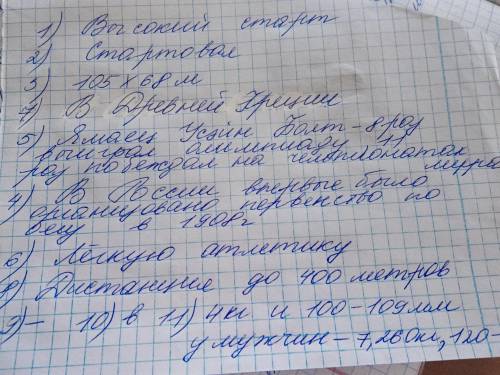 1) Высокий старт
2) Стартовая
3) 105 х 68 м
7) В Древней Греции
5) Ямаец Усэйн Болт - 8 раз
выиграл олимпиаду 11
раз побеждал на чемпионатах мира
4) В России впервые было
организовано первенство по
бегу в 1908г
6) Лёгкую атлетику
8) Дистанция до 400 метров
9) - 10) в 11) 4кг и 100-109мм
у мужчин - 7,260кг, 120-